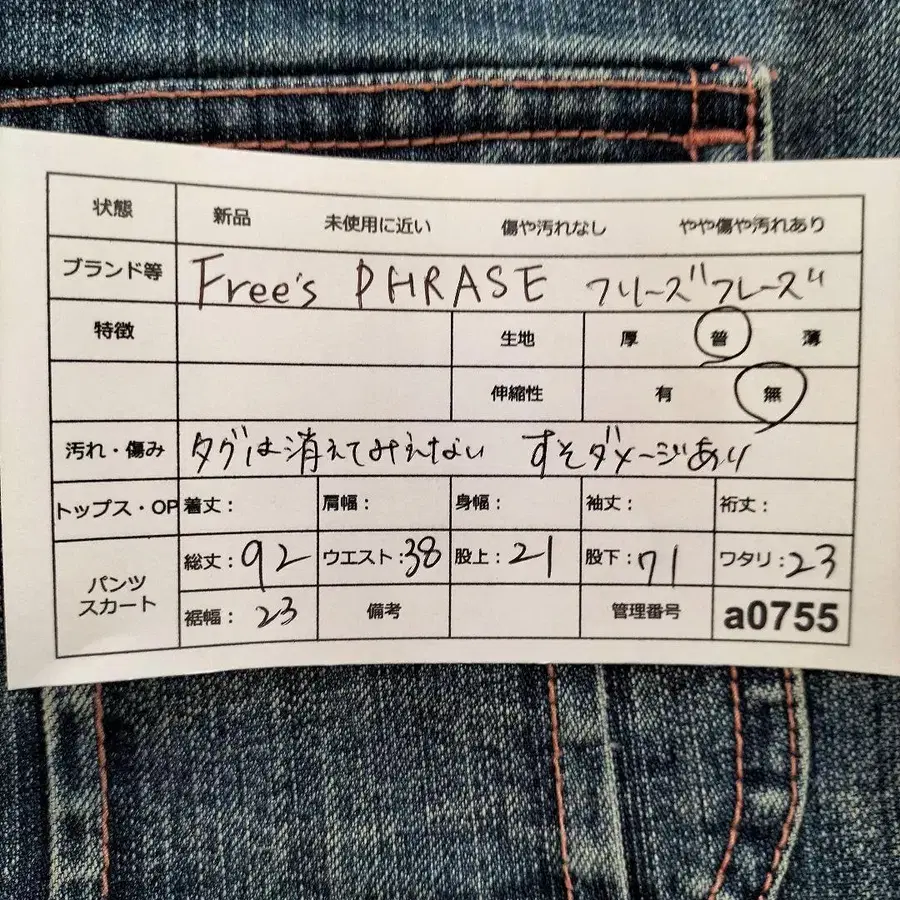 状態 新品 未使用に近い 傷や汚れなし やや傷や汚れあり
ブランド等 Free's PHRASE フリーズフレーズ
特徴 生地 厚 普 薄
伸縮性 有 無
汚れ・傷み タグは消えてみえない すそダメージあり
トップス・OP 着丈： 肩幅： 身幅： 袖丈： 裄丈：
パンツ スカート 総丈：92 ウエスト：38 股上：21 股下：71 ワタリ：23
裾幅：23 備考 管理番号 a0755